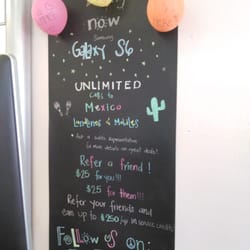 now
Samsung
Galaxy S6
UNLIMITED
Calls to
Mexico
Landlines & Mobiles
* Ask a sales representative
for more details on great deals!!
Refer a friend!
$25 for you!!!
$25 for them!!!
Refer your friends and
earn up to $250/yr in service credits
Follow us on: